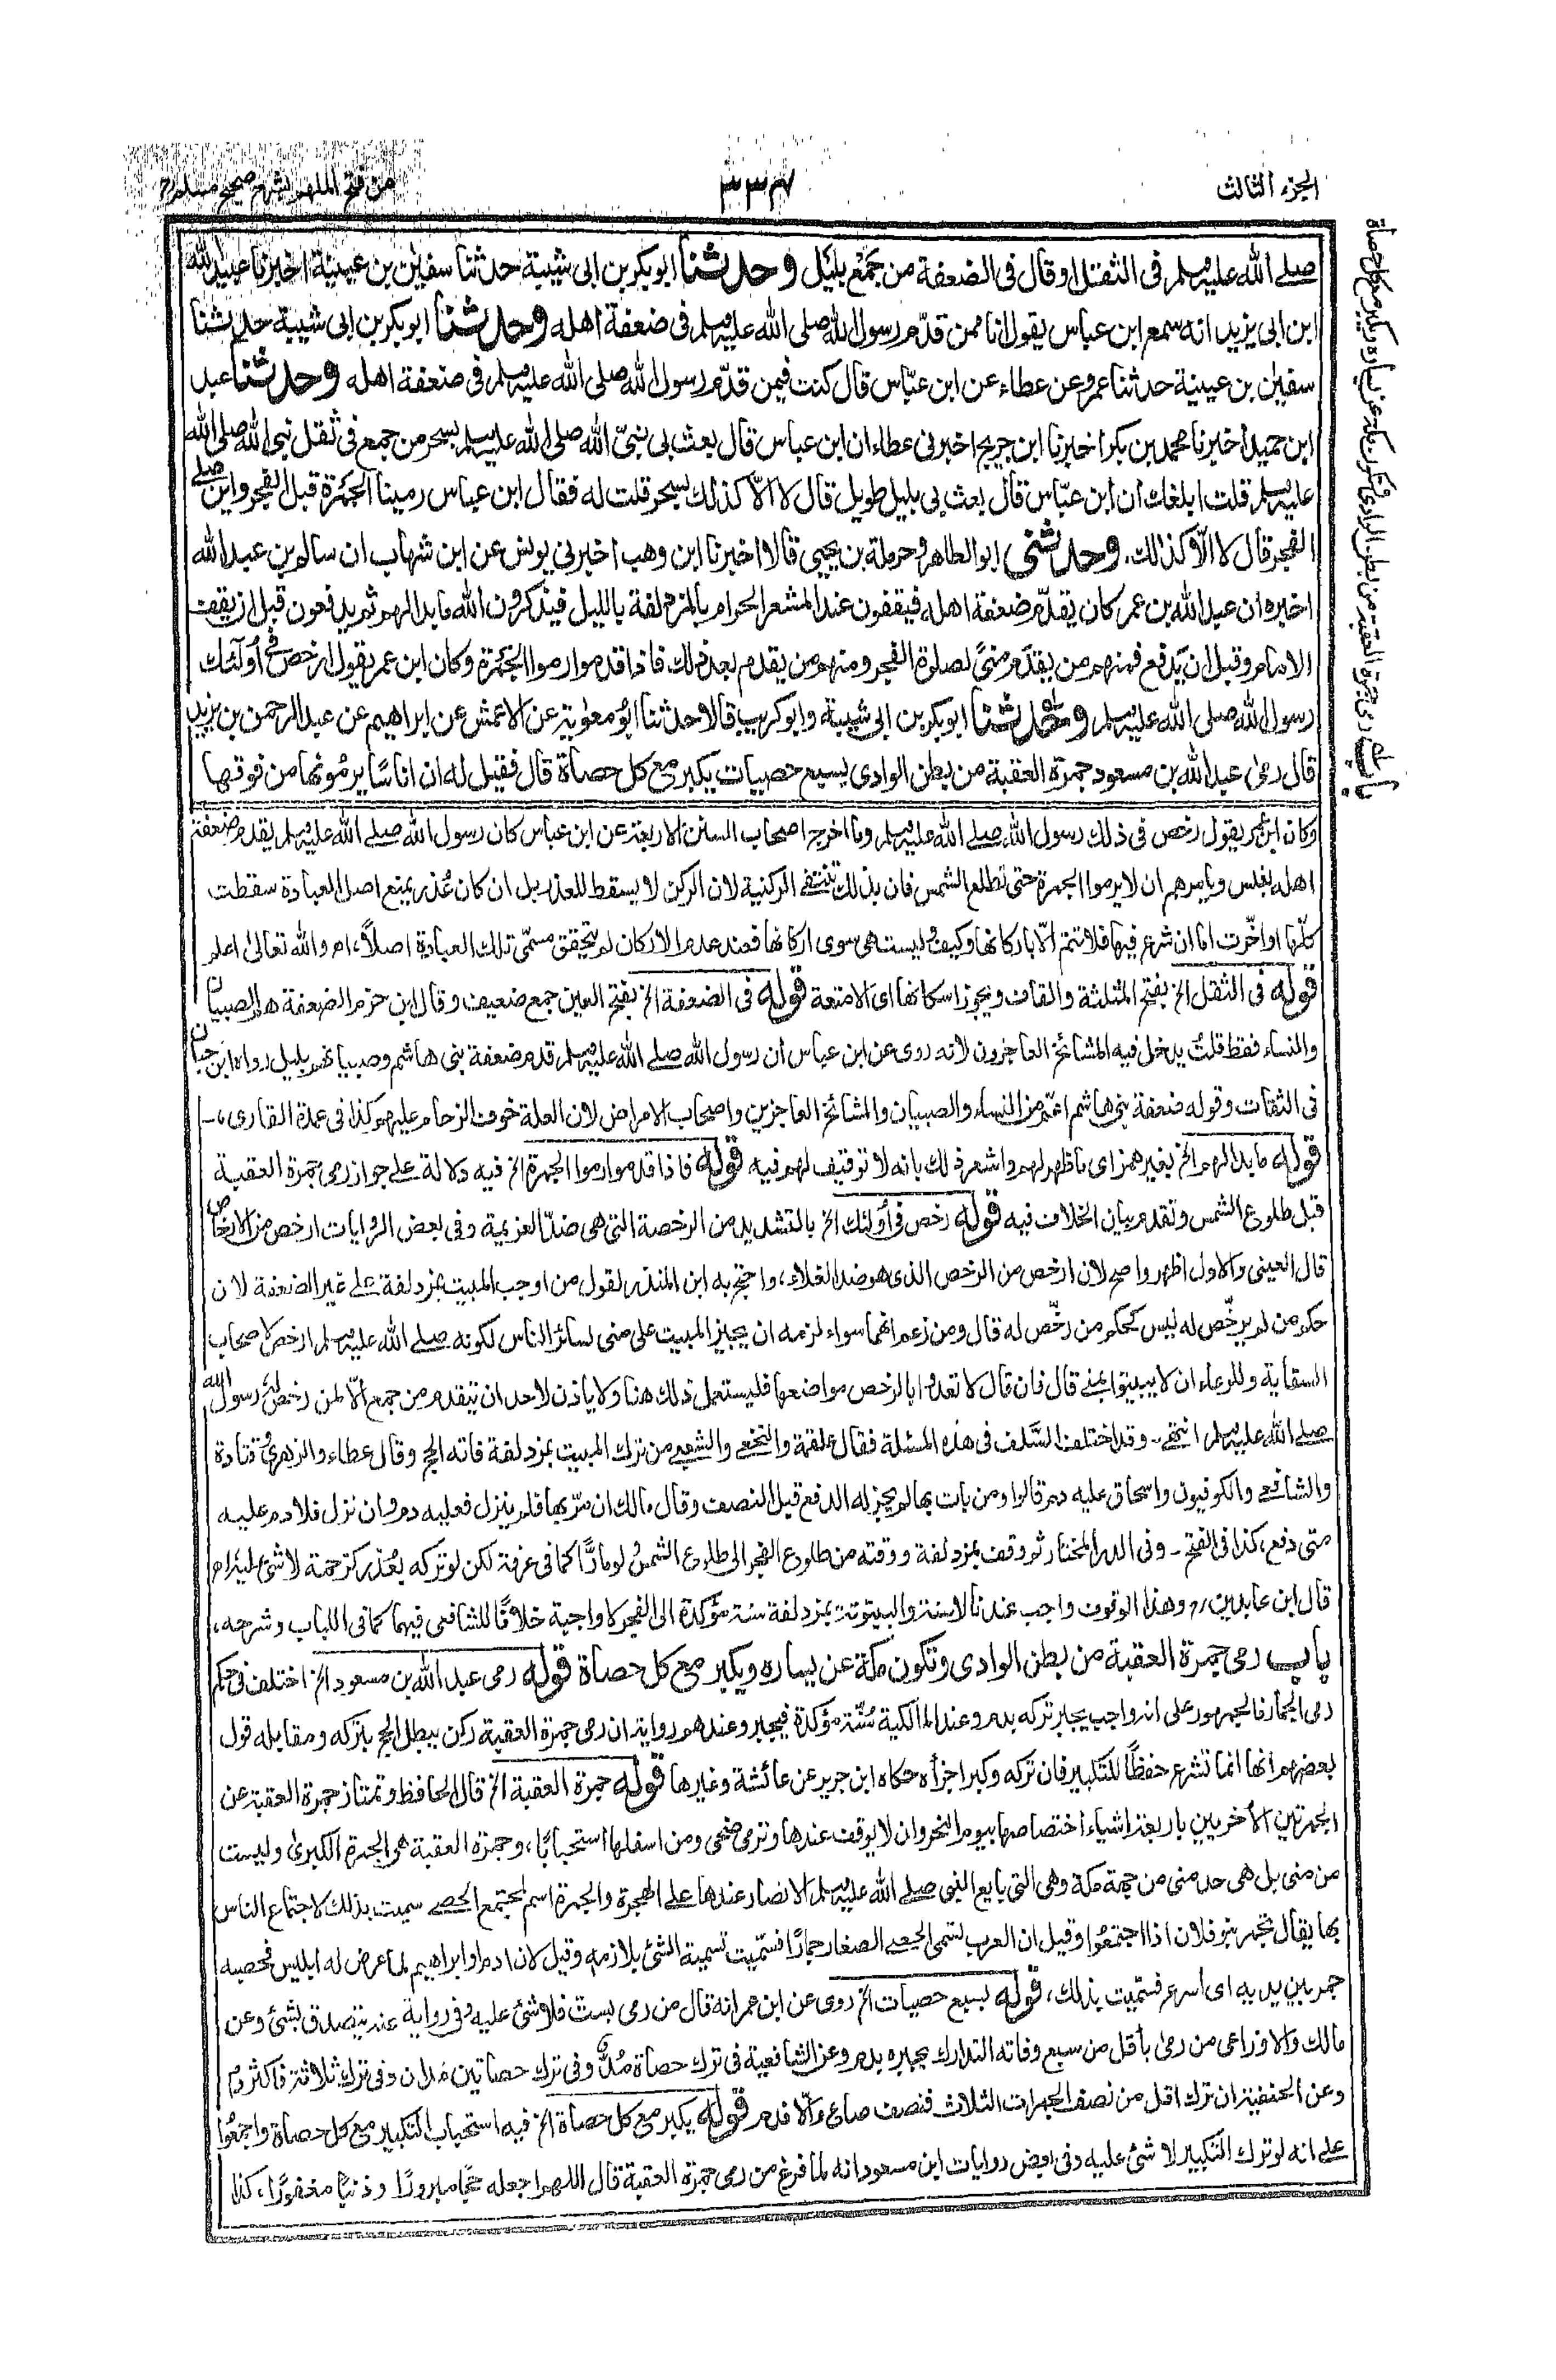 الجزء الثالث
٣٣٧
من فتح الملهم بشرح صحيح مسلم
باب رمى جمرة العقبة من بطن الوادى وتكون مكة عن يساره ويكبر مع كل حصاة
صلے الله عليہ وسلم فى الثقل اوقال فى الضعفة من جمع بليل وحدثنا ابوبكر بن ابى شيبة حدثنا سفيٰن بن عيينة اخبرنا عبيدالله
ابن ابى يزيد انه سمع ابن عباس يقول انا ممن قدّم رسول الله صلى الله عليہ وسلم فى ضعفة اهله وحدثنا ابوبكر بن ابى شيبة حدثنا
سفيٰن بن عيينة حدثنا عمرو عن عطاء عن ابن عبّاس قال كنت فيمن قدّم رسول الله صلى الله عليہ وسلم فى ضعفة اهله وحدثنا عبد
ابن حميد اخبرنا محمد بن بكر اخبرنا ابن جريج اخبرنى عطاء ان ابن عباس قال بعث بى نبىّ الله صلى الله عليہ وسلم بسحر من جمع فى ثقل نبى الله صلى الله
عليہ وسلم قلت ابلغك ان ابن عبّاس قال بعث بى بليل طويل قال لا الّا كذلك بسحر قلت له فقال ابن عباس رمينا الجمرة قبل الفجر واين صلے
الفجر قال لا الّا كذلك. وحدثنى ابوالطاهر وحرملة بن يحيى قالا اخبرنا ابن وهب اخبرنى يونس عن ابن شهاب ان سالم بن عبدالله
اخبره ان عبدالله بن عمر كان يقدّم ضعفة اهله فيقفون عند المشعر الحرام بالمزدلفة بالليل فيذكرون الله ما بدا لهم ثم يدفعون قبل ان يقف
الامام وقبل ان يدفع فمنهم من يقدَم منىً لصلوة الفجر ومنهم من يقدم بعد ذلك فاذا قدموا رموا الجمرة وكان ابن عمر يقول ارخص فى اُولٰئك
رسول الله صلى الله عليہ وسلم وحدثنا ابوبكر بن ابى شيبة وابوكريب قالا حدثنا ابُو معٰوية عن الاعمش عن ابراهيم عن عبدالرحمن بن يزيد
قال رمٰى عبدالله بن مسعود جمرة العقبة من بطن الوادى بسبع حصيات يكبر مع كل حصاة قال فقيل له ان اناسًا يرمُونها من فوقها
وكان ابن عمر يقول رخص فى ذلك رسول الله صلے الله عليہ وسلم وما اخرجه اصحاب السنن الاربعة عن ابن عباس كان رسول الله صلے الله عليہ وسلم يقدم ضعفة
اهله بغلس ويامرهم ان لا يرموا الجمرة حتى تطلع الشمس فان بذلك تنتفى الركنية لان الركن لا يسقط للعذر بل ان كان عُذر يمنع اصل العبادة سقطت
كلّها او اخّرت اما ان شرع فيها فلا تتم الّا باركانها وكيف وليست هى سوى اركانها فعند عدم الاركان لم يتحقق مسمّى تلك العبادة اصلاً، اھ والله تعالىٰ اعلم
قوله فى الثقل الخ بفتح المثلثة والقاف ويجوز اسكانها اى الامتعة قوله فى الضعفة الخ بفتح العين جمع ضعيف وقال ابن حزم الضعفة هم الصبيان
والنساء فقط قلتُ يدخل فيه المشائخ العاجزون لانه روى عن ابن عباس ان رسول الله صلے الله عليہ وسلم قدم ضعفة بنى هاشم وصبيانهم بليل رواه ابن حبان
فى الثقات وقوله ضعفة بنى هاشم اعمّ من النساء والصبيان والمشائخ العاجزين واصحاب الامراض لان العلة خوف الزحام عليهم كذا فى عمدة القارى،-
قوله ما بدا لهم الخ بغير همز اى ما ظهر لهم واشعر ذلك بانه لا توقيف لهم فيه قوله فاذا قدموا رموا الجمرة الخ فيه دلالة علے جواز رمى جمرة العقبة
قبل طلوع الشمس وتقدم بيان الخلاف فيه قوله رخص فى اُولئك الخ بالتشديد من الرخصة التى هى ضدّ العزيمة وفى بعض الروايات ارخص من الارخاص
قال العينى والاول اظهر واصح لان ارخص من الرخص الذى هو ضد الغلاء، واحتج به ابن المنذر لقول من اوجب المبيت بمزدلفة علے غير الضعفة لان
حكم من لم يرخّص له ليس كحكم من رخّص له قال ومن زعم انهما سواء لزمه ان يجيز المبيت على منى لسائر الناس لكونه صلے الله عليہ وسلم ارخص لاصحاب
السقاية وللرعاء ان لا يبيتوا بمنے قال فان قال لا تعدوا بالرخص مواضعها فليستعمل ذلك هنا ولا ياذن لاحد ان يتقدم من جمع الّا لمن رخص له رسول الله
صلے الله عليہ وسلم انتهے- وقد اختلف السّلف فى هذه المسئلة فقال علقمة والنخعے والشعبے من ترك المبيت بمزدلفة فاته الحج وقال عطاء والزهرىُّ وقتادة
والشافعے والكوفيون واسحاق عليه دم قالوا ومن بات بها لم يجز له الدفع قبل النصف وقال مالك ان مرّ بها فلم ينزل فعليه دم وان نزل فلا دم عليه
متى دفع، كذا فى الفتح - وفى الدر المختار ثم وقف بمزدلفة ووقته من طلوع الفجر الى طلوع الشمس ولو مارًّا كما فى عرفة لكن لو تركه بعُذر كزحمة لا شئ عليه اھ
قال ابن عابدين رح وهذا الوقوف واجب عندنا لا سنة والبيتوتة بمزدلفة سنة مؤكدة الى الفجر لا واجبة خلافًا للشافعى فيهما كما فى اللباب وشرحه،
باب رمى جمرة العقبة من بطن الوادى وتكون مكة عن يساره ويكبر مع كل حصاة قوله رمى عبدالله بن مسعود الخ اختلف فى حكم
رمى الجمار فالجمهور على انه واجب يجبر تركه بدم وعند المالكية سُنّة مؤكدة فيجبر وعندهم رواية ان رمى جمرة العقبة ركن يبطل الحج بتركه ومقابله قول
بعضهم انها انما تشرع حفظًا للتكبير فان تركه وكبر اجزأه حكاه ابن جرير عن عائشة وغيرها قوله جمرة العقبة الخ قال الحافظ وتمتاز جمرة العقبة عن
الجمرتين الاُخريين باربعة اشياء اختصاصها بيوم النحر وان لا يوقف عندها وترمى ضحى ومن اسفلها استحبابًا، وجمرة العقبة هى الجمرة الكبرىٰ وليست
من منى بل هى حد منى من جهة مكة وهى التى بايع النبى صلے الله عليہ وسلم الانصار عندها علے الهجرة والجمرة اسم لمجتمع الحصے سميت بذلك لاجتماع الناس
بها يقال تجمر بنو فلان اذا اجتمعُوا وقيل ان العرب تسمى الحصے الصغار جمارًا فسمّيت تسمية الشئ بلازمه وقيل لان ادم او ابراهيم لما عرض له ابليس فحصبه
جمر بين يديه اى اسرع فسُمّيت بذلك، قوله بسبع حصيات الخ روى عن ابن عمر انه قال من رمى بست فلا شئ عليه وفى رواية عنه يتصدق بشئ وعن
مالك والاوزاعى من رمىٰ باقل من سبع وفاته التدارك يجبره بدم وعن الشافعية فى ترك حصاة مُدٌّ وفى ترك حصاتين مدان وفى ترك ثلاثة فاكثر دمٌ
وعن الحنفية ان ترك اقل من نصف الجمرات الثلاث فنصف صاع والّا فدم قوله يكبر مع كل حصاة الخ فيه استحباب التكبير مع كل حصاة واجمعُوا
علے انه لو ترك التكبير لا شئ عليه وفى بعض روايات ابن مسعود انه لما فرغ من رمى جمرة العقبة قال اللهم اجعله حجًّا مبرورًا وذنبًا مغفورًا، كذا